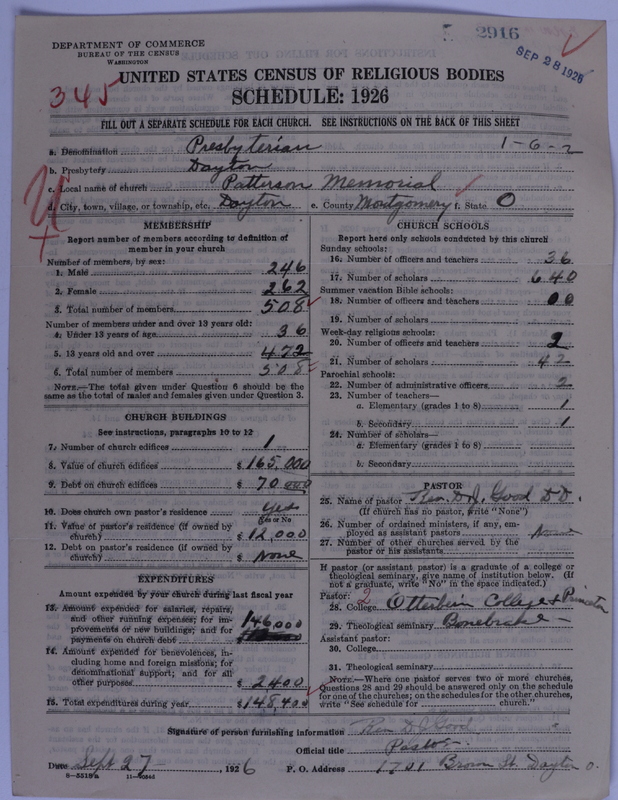 2916
SEP 28 1926
DEPARTMENT OF COMMERCE
BUREAU OF THE CENSUS
WASHINGTON
UNITED STATES CENSUS OF RELIGIOUS BODIES
345
SCHEDULE: 1926
FILL OUT A SEPARATE SCHEDULE FOR EACH CHURCH. SEE INSTRUCTIONS ON THE BACK OF THIS SHEET
a. Denomination Presbyterian 1-6-2
b. Presbytery Dayton
c. Local name of church Patterson Memorial
d. City, town, village, or township, etc. Dayton e. County Montgomery f. State O
MEMBERSHIP
Report number of members according to definition of
member in your church
Number of members, by sex:
1. Male 246
2. Female 262
3. Total number of members 508
Number of members under and over 13 years old:
4. Under 13 years of age 36
5. 13 years old and over 472
6. Total number of members 508
NOTE.—The total given under Question 6 should be the
same as the total of males and females given under Question 3.
CHURCH BUILDINGS
See instructions, paragraphs 10 to 12
7. Number of church edifices 1
8. Value of church edifices $165,000
9. Debt on church edifices $70,000
10. Does church own pastor's residence yes
Yes or No
11. Value of pastor's residence (if owned by
church) $12,000
12. Debt on pastor's residence (if owned by
church) $None
EXPENDITURES
Amount expended by your church during last fiscal year
13. Amount expended for salaries, repairs,
and other running expenses; for im-
provements or new buildings; and for
payments on church debt $146,000
14. Amount expended for benevolences, in-
cluding home and foreign missions; for
denominational support; and for all
other purposes $2400
15. Total expenditures during year $148,400
CHURCH SCHOOLS
Report here only schools conducted by this church
Sunday schools:
16. Number of officers and teachers 36
17. Number of scholars 640
Summer vacation Bible schools:
18. Number of officers and teachers 00
19. Number of scholars
Week-day religious schools:
20. Number of officers and teachers 2
21. Number of scholars 42
Parochial schools:
22. Number of administrative officers 2
23. Number of teachers—
a. Elementary (grades 1 to 8) 1
b. Secondary 1
24. Number of scholars—
a. Elementary (grades 1 to 8)
b. Secondary
PASTOR
25. Name of pastor Rev. D.J. Good D.D.
(If church has no pastor, write "None")
26. Number of ordained ministers, if any, em-
ployed as assistant pastors
27. Number of other churches served by the
pastor or his assistants
If pastor (or assistant pastor) is a graduate of a college or
theological seminary, give name of institution below. (If
not a graduate, write "No" in the space indicated.)
Pastor: 2
28. College Otterbein College & Princeton
29. Theological seminary Bonebrake
Assistant pastor:
30. College
31. Theological seminary
NOTE.—Where one pastor serves two or more churches,
Questions 28 and 29 should be answered only on the schedule
for one of the churches; on the schedules for the other churches,
write "See schedule for church."
Signature of person furnishing information Rev D J Good
Official title Pastor
Date Sept 27, 1926 P. O. Address 1701 Brown St. Dayton O.
8-5518a